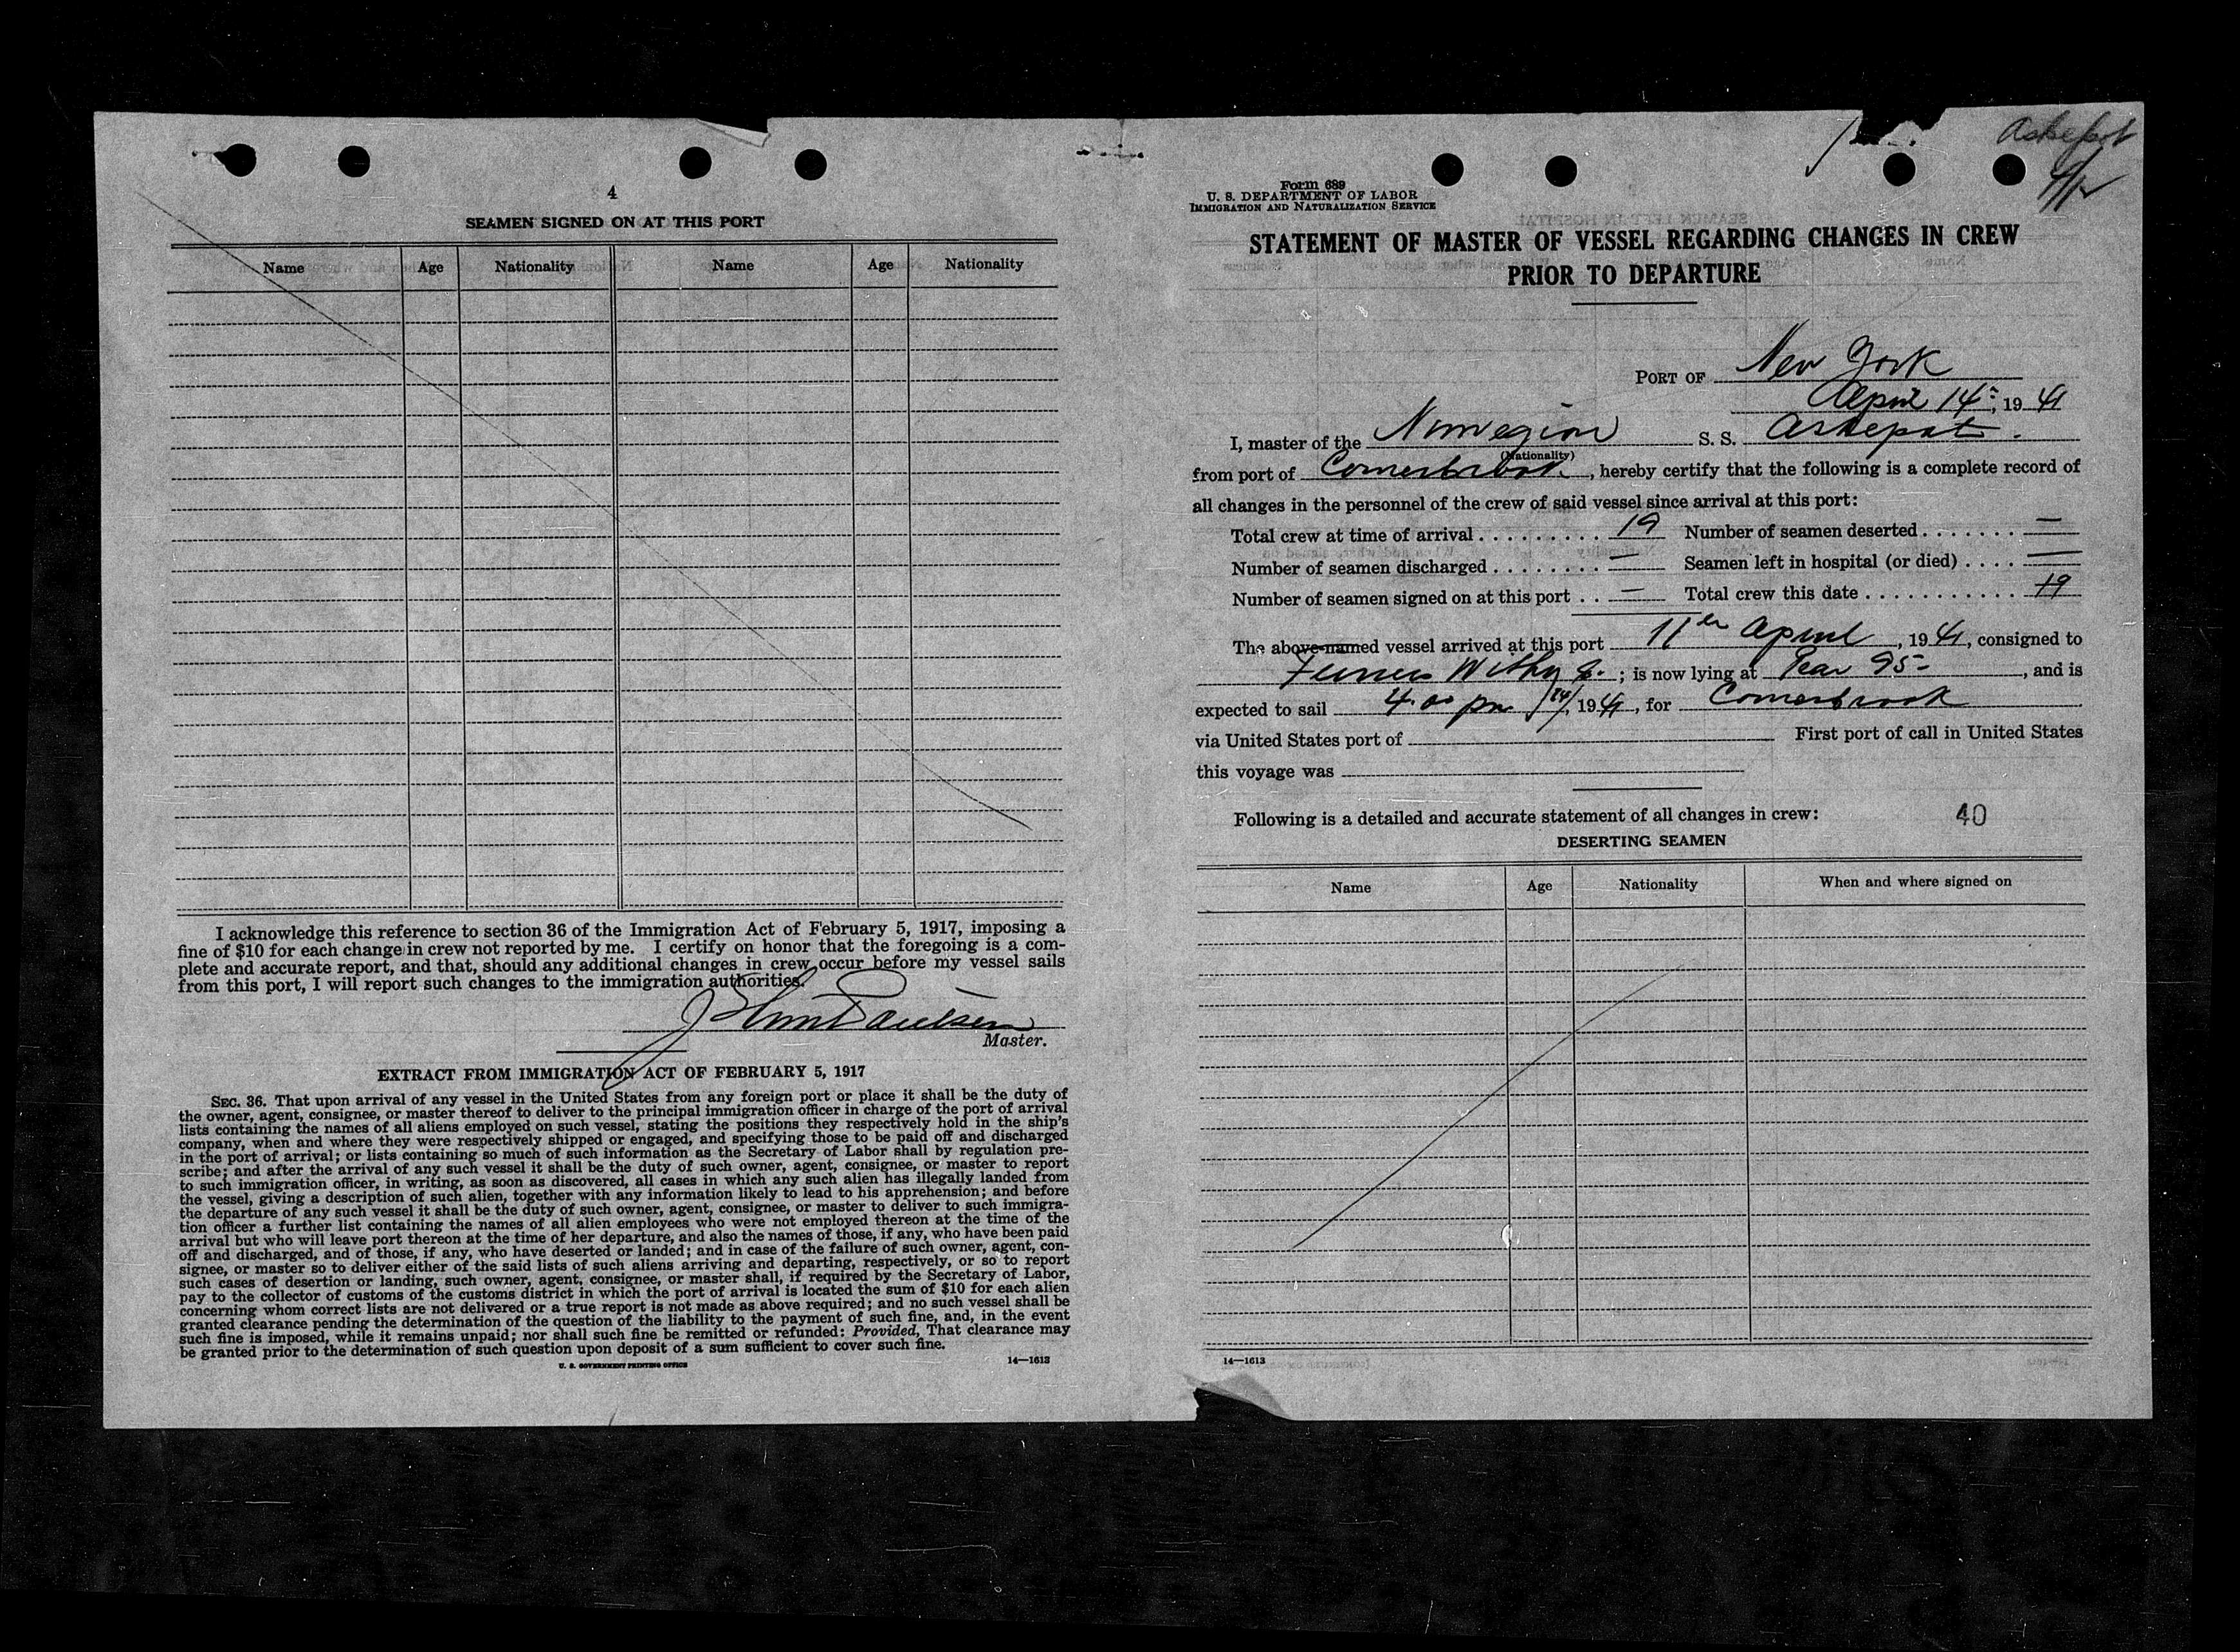 4
SEAMEN SIGNED ON AT THIS PORT
Name Age Nationality Name Age Nationality
I acknowledge this reference to section 36 of the Immigration Act of February 5, 1917, imposing a
fine of $10 for each change in crew not reported by me. I certify on honor that the foregoing is a com-
plete and accurate report, and that, should any additional changes in crew occur before my vessel sails
from this port, I will report such changes to the immigration authorities.
Paulsen
Master.
EXTRACT FROM IMMIGRATION ACT OF FEBRUARY 5, 1917
SEC. 36. That upon arrival of any vessel in the United States from any foreign port or place it shall be the duty of
the owner, agent, consignee, or master thereof to deliver to the principal immigration officer in charge of the port of arrival
lists containing the names of all aliens employed on such vessel, stating the positions they respectively hold in the ship's
company, when and where they were respectively shipped or engaged, and specifying those to be paid off and discharged
in the port of arrival; or lists containing so much of such information as the Secretary of Labor shall by regulation pre-
scribe; and after the arrival of any such vessel it shall be the duty of such owner, agent, consignee, or master to report
to such immigration officer, in writing, as soon as discovered, all cases in which any such alien has illegally landed from
the vessel, giving a description of such alien, together with any information likely to lead to his apprehension; and before
the departure of any such vessel it shall be the duty of such owner, agent, consignee, or master to deliver to such immigra-
tion officer a further list containing the names of all alien employees who were not employed thereon at the time of the
arrival but who will leave port thereon at the time of her departure, and also the names of those, if any, who have been paid
off and discharged, and of those, if any, who have deserted or landed; and in case of the failure of such owner, agent, con-
signee, or master so to deliver either of the said lists of such aliens arriving and departing, respectively, or so to report
such cases of desertion or landing, such owner, agent, consignee, or master shall, if required by the Secretary of Labor,
pay to the collector of customs of the customs district in which the port of arrival is located the sum of $10 for each alien
concerning whom correct lists are not delivered or a true report is not made as above required; and no such vessel shall be
granted clearance pending the determination of the question of the liability to the payment of such fine, and, in the event
such fine is imposed, while it remains unpaid; nor shall such fine be remitted or refunded: Provided, That clearance may
be granted prior to the determination of such question upon deposit of a sum sufficient to cover such fine.
U. S. GOVERNMENT PRINTING OFFICE 14—1613
Askepot
Form 689
U. S. DEPARTMENT OF LABOR
IMMIGRATION AND NATURALIZATION SERVICE
STATEMENT OF MASTER OF VESSEL REGARDING CHANGES IN CREW
PRIOR TO DEPARTURE
PORT OF New York
April 14, 1941
I, master of the Norwegian S. S. Askepot.
(Nationality)
from port of Cornerbrook, hereby certify that the following is a complete record of
all changes in the personnel of the crew of said vessel since arrival at this port:
Total crew at time of arrival . . . . . . . . . 19 Number of seamen deserted . . . . . . . —
Number of seamen discharged . . . . . . . . — Seamen left in hospital (or died) . . . . —
Number of seamen signed on at this port . . — Total crew this date . . . . . . . . . . . . 19
The above-named vessel arrived at this port 11th April, 1941, consigned to
Furness Withy &.; is now lying at Pear 95, and is
expected to sail 4.00 pm 14/, 1941, for Cornerbrook
via United States port of First port of call in United States
this voyage was
Following is a detailed and accurate statement of all changes in crew: 40
DESERTING SEAMEN
Name Age Nationality When and where signed on
14—1613